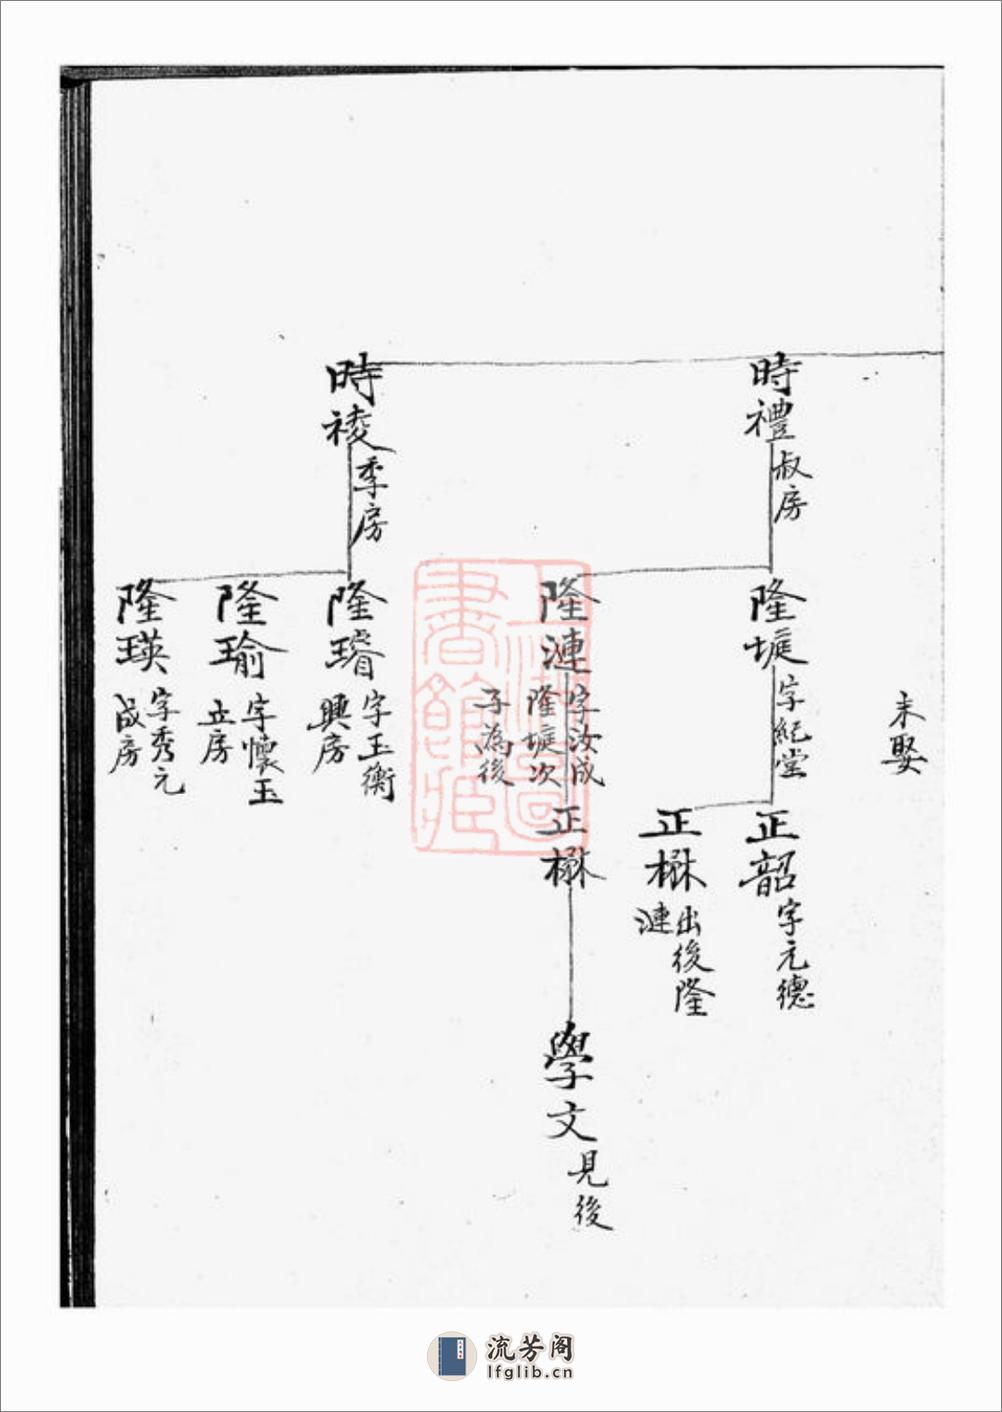 未娶
時禮
叔房
隆㙻
字紀堂
正韶
字元德
正楙
出後隆
漣
隆漣
字汝成
隆㙻次
子為後
正楙
學文
見後
時祾
季房
隆璿
字玉衡
興房
隆瑜
字懷玉
立房
隆瑛
字秀元
成房
流芳阁
lfglib.cn